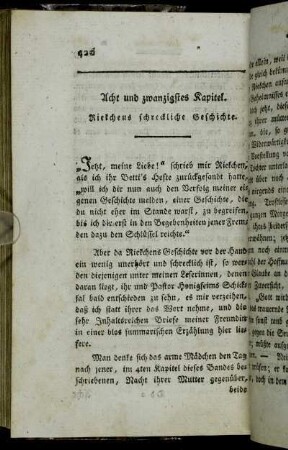 Acht und zwanzigstes Kapitel.
Riekchens schreckliche Geschichte.
„Jetzt, meine Liebe!“ schrieb mir Riekchen,
als ich ihr Betti's Hefte zurückgesandt hatte,
„will ich dir nun auch den Verfolg meiner ei-
genen Geschichte melden, einer Geschichte, die
du nicht eher im Stande warst, zu begreifen,
bis ich dir erst in den Begebenheiten jener Frem-
den dazu den Schlüssel reichte.“
Aber da Riekchens Geschichte vor der Hand
ein wenig unerhört und schrecklich ist, so wer-
den diejenigen unter meinen Leserinnen, denen
daran liegt, ihr und Pastor Honigseims Schick-
sal bald entschieden zu sehn, es mir verzeihen,
daß ich statt ihrer das Wort nehme, und die
sehr Inhaltsreichen Briefe meiner Freundin
in einer blos summarischen Erzählung hier lie-
fere.
Man denke sich das arme Mädchen den Tag
nach jener, im 4ten Kapitel dieses Bandes be-
schriebenen, Nacht ihrer Mutter gegenüber,
beide